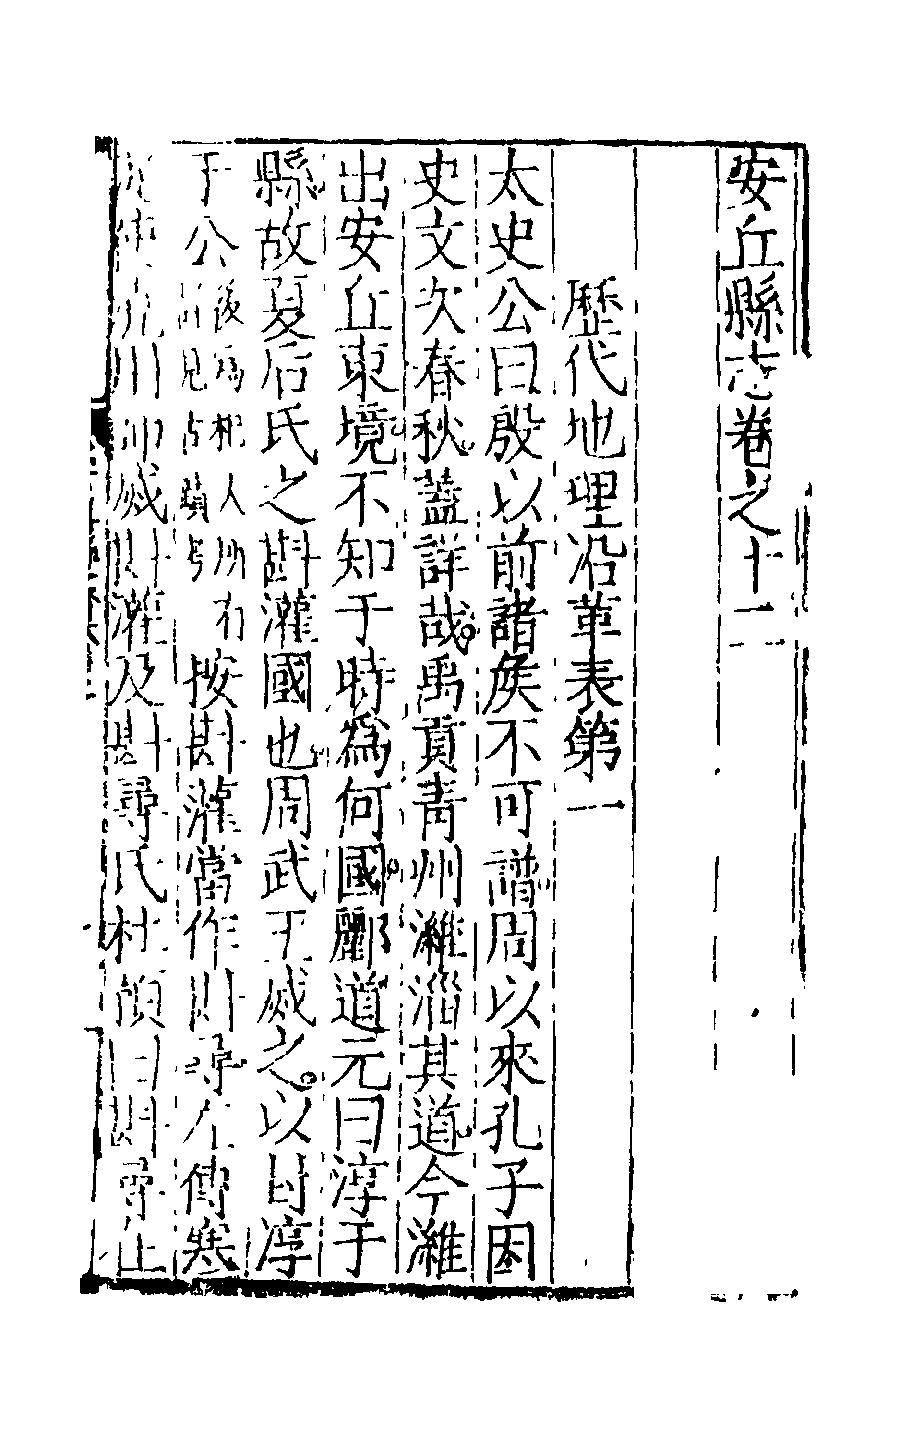 安丘縣志卷之十二
歷代地理沿革表第一
太史公曰殷以前諸侯不可譜周以來孔子因
史文次春秋蓋詳哉禹貢靑州濰淄其道今濰
出安丘東境不知于時爲何國酈道元曰淳于
縣故夏后氏之斟灌國也周武王滅之以封淳
于公後爲杞人所有詳見古蹟考按斟灌當作斟尋左傳寒
浞使澆用師滅斟灌及斟尋氏杜預曰斟尋在